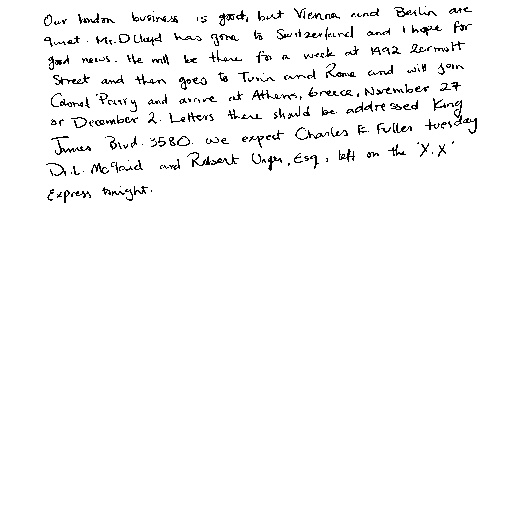 Our London business is good, but Vienna and Berlin are
quiet. Mr. D Lloyd has gone to Switzerland and I hope for
good news. He will be there for a week at 1992 Zermott
Street and then goes to Turin and Rome and will join
Colonel Parry and arrive at Athens, Greece, November 27
or December 2. Letters there should be addressed King
James Blvd. 3580. We expect Charles E. Fuller tuesday
Dr. L. McQuaid and Robert Unger, Esq., left on the 'X.X'
Express tonight.